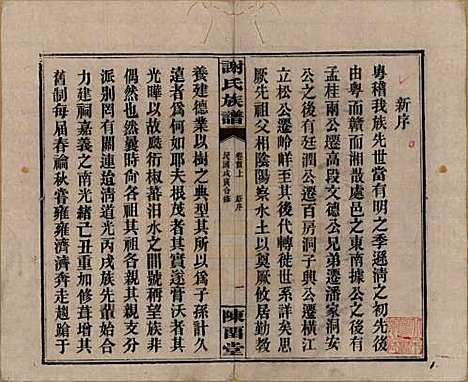 新序
粵稽我族先世當有明之季遜清之初先後
由粵而贛而湘散處邑之東南據公之後有
孟桂兩公遷高段文德公兄弟遷潘家洞安
公之後有廷潤公遷百房洞子興公遷橫江
立松公遷岭畔至其後代轉徙世系詳矣思
厥先世祖父相陰陽察水土以奠以居休
謝氏族譜
卷首上
新序
一
民國戊寅合修
陳閣堂
養建德業以樹之典型其所以為子孫計久
遠者為何如耶夫根茂者其實遂膏沃者其
光曄以故瓞衍椒蕃汨水之間儼然望族非
偶然也然曩時向各祖其祖各親其親支分
派別罔有統紀清同治丙戌族先輩始合
力建祠嘉義之南光緒己丑重加修葺增其
舊制每屆春禴秋嘗雍雍濟濟奔走趨蹌于